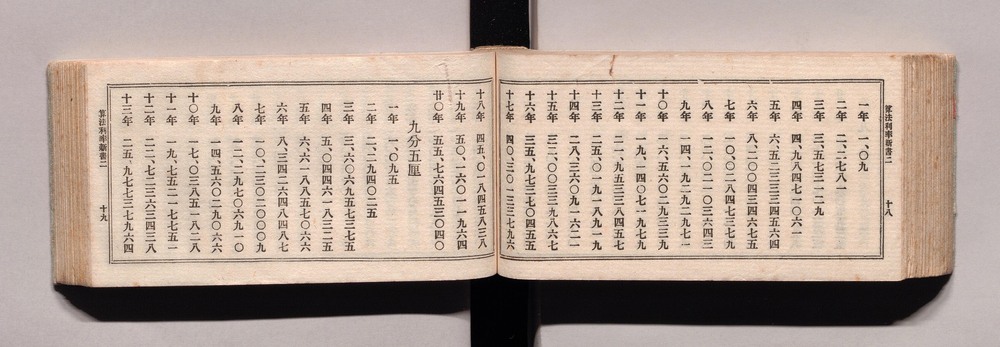 算法利率新書二 十八
一年 一、〇九
二年 二、二七八一
三年 三、五七三一二九
四年 四、九八四七一〇六一
五年 六、五二三三三四五六四
六年 八、二〇〇四三四六七五
七年 一〇、〇二八四七三七九
八年 一二、〇二一〇三六四三
九年 一四、一九二九二九七一
十〇年 一六、五六〇二九三三九
十一年 一九、一四〇七一九七九
十二年 二一、九五三三八四五七
十三年 二五、〇一九一八九一九
十四年 二八、三六〇九一六二一
十五年 三二、〇〇三三九八六七
十六年 三五、九七三七〇四五五
十七年 四〇、三〇一三三七九六
十八年 四五、〇一八四五八三八
十九年 五〇、一六〇一一九六四
廿〇年 五五、七六四五三〇四〇
九分五厘
一年 一、〇九五
二年 二、二九四〇二五
三年 三、六〇六九五七三七五
四年 五、〇四四六一八三二五
五年 六、六一八八五七〇六六
六年 八、三四二六四八四八七
七年 一〇、二三〇二〇〇〇九
八年 一二、二九七〇六九一〇
九年 一四、五六〇二九〇六六
十〇年 一七、〇三八五一八二八
十一年 一九、七五二一七七五一
十二年 二二、七二三六三四三八
十三年 二五、九七七三七九六四
算法利率新書二 十九